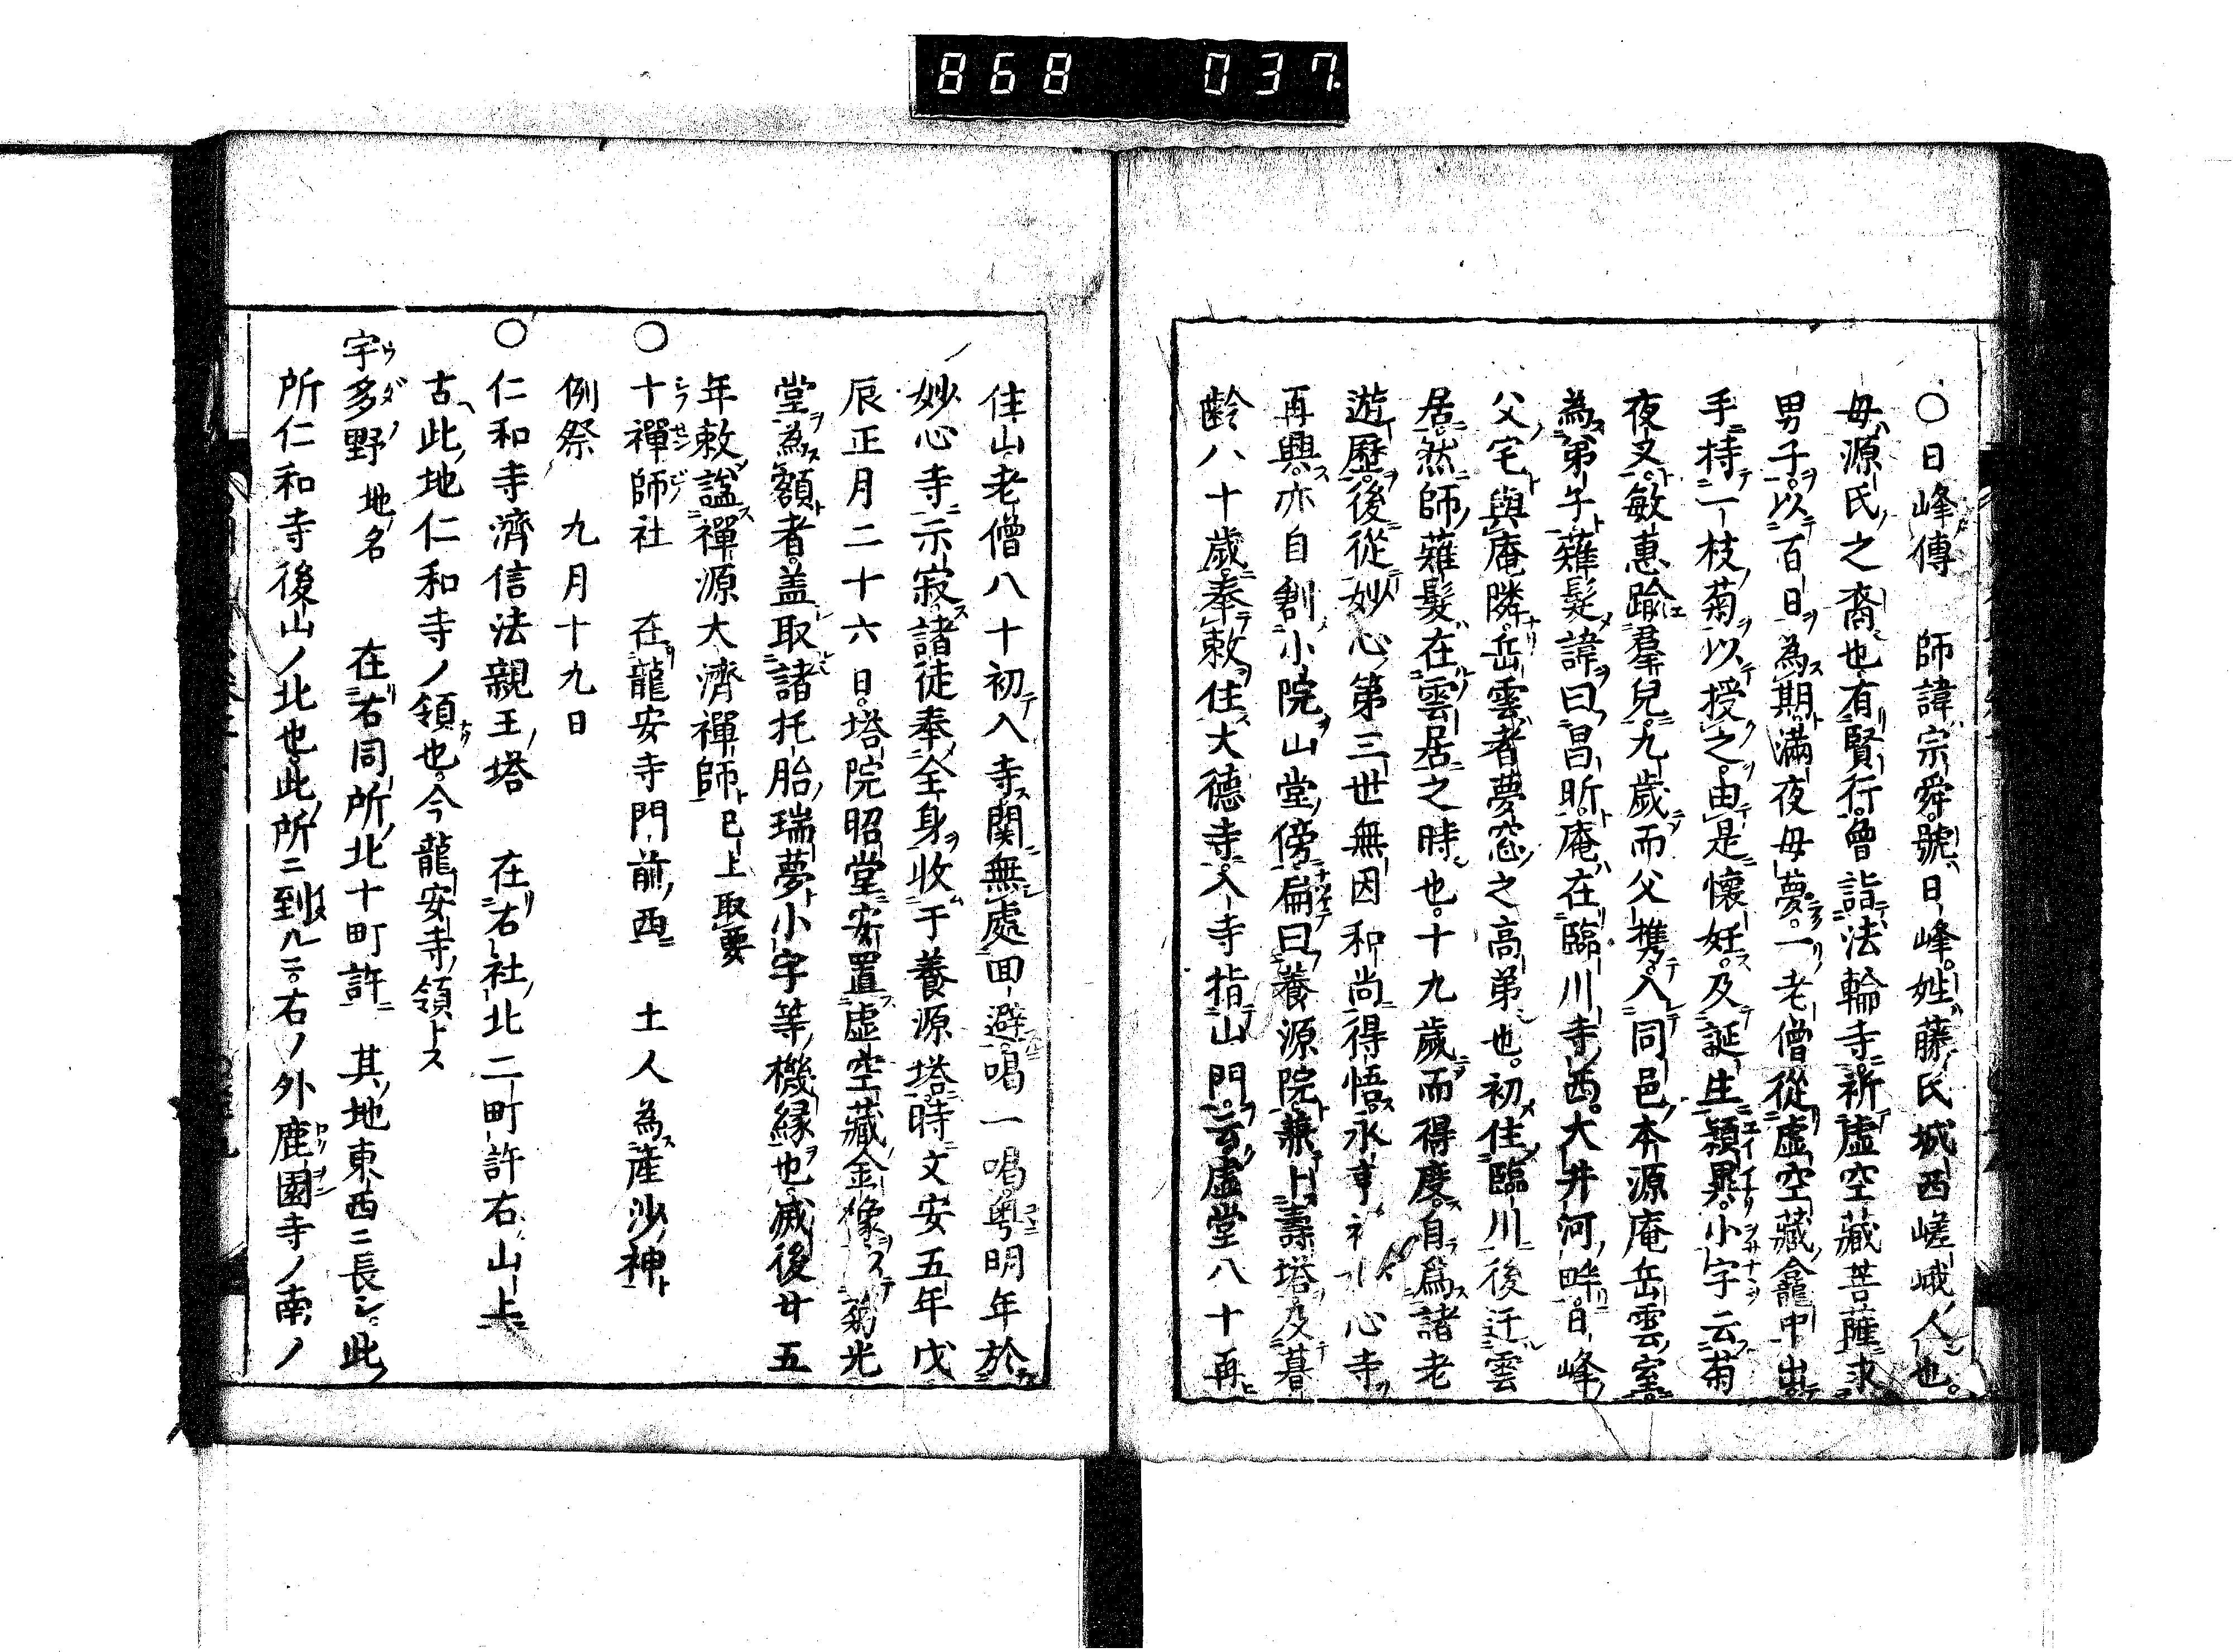 868 037
○日峰傳 師諱宗舜號日峰姓藤氏城西嵯峨人也
母源氏之裔也有賢行曾詣法輪寺祈虛空藏菩薩求
男子以百日為期滿夜母夢一老僧從虛空藏龕中出
手持一枝菊以授之由是懷妊及誕生穎異小字云菊
夜叉敏惠踰羣兒九歲而父携入同邑本源庵岳雲室
為弟子薙髮諱曰昌昕庵在臨川寺西大井河畔日峰
父宅與庵隣岳雲者夢窓之高弟也初住臨川後迁雲
居然師薙髮在雲居之時也十九歲而得度自爲諸老
遊歷後從妙心第三世無因和尚得悟永享 心寺
再興亦自創小院山堂傍扁曰養源院兼卜壽塔及暮
齡八十歲奉敕住大德寺入寺指山門云虛堂八十再
住山老僧八十初入寺関無處回避喝一喝粤明年於
妙心寺示寂諸徒奉全身收于養源塔時文安五年戊
辰正月二十六日塔院昭堂安置虛空藏金像菊光
堂為額者盖取諸托胎瑞夢小字等機緣也滅後廿五
年敕諡禪源大濟禪師已上取要
○十禪師社 在龍安寺門前西 土人為産沙神
例祭 九月十九日
○仁和寺濟信法親王塔 在右社北二町許右山上
古此地仁和寺ノ領也今龍安寺領トス
宇多野 地名 在右同所北十町許 其地東西ニ長シ此
所仁和寺後山ノ北也此所ニ到ル右ノ外鹿園寺ノ南ノ